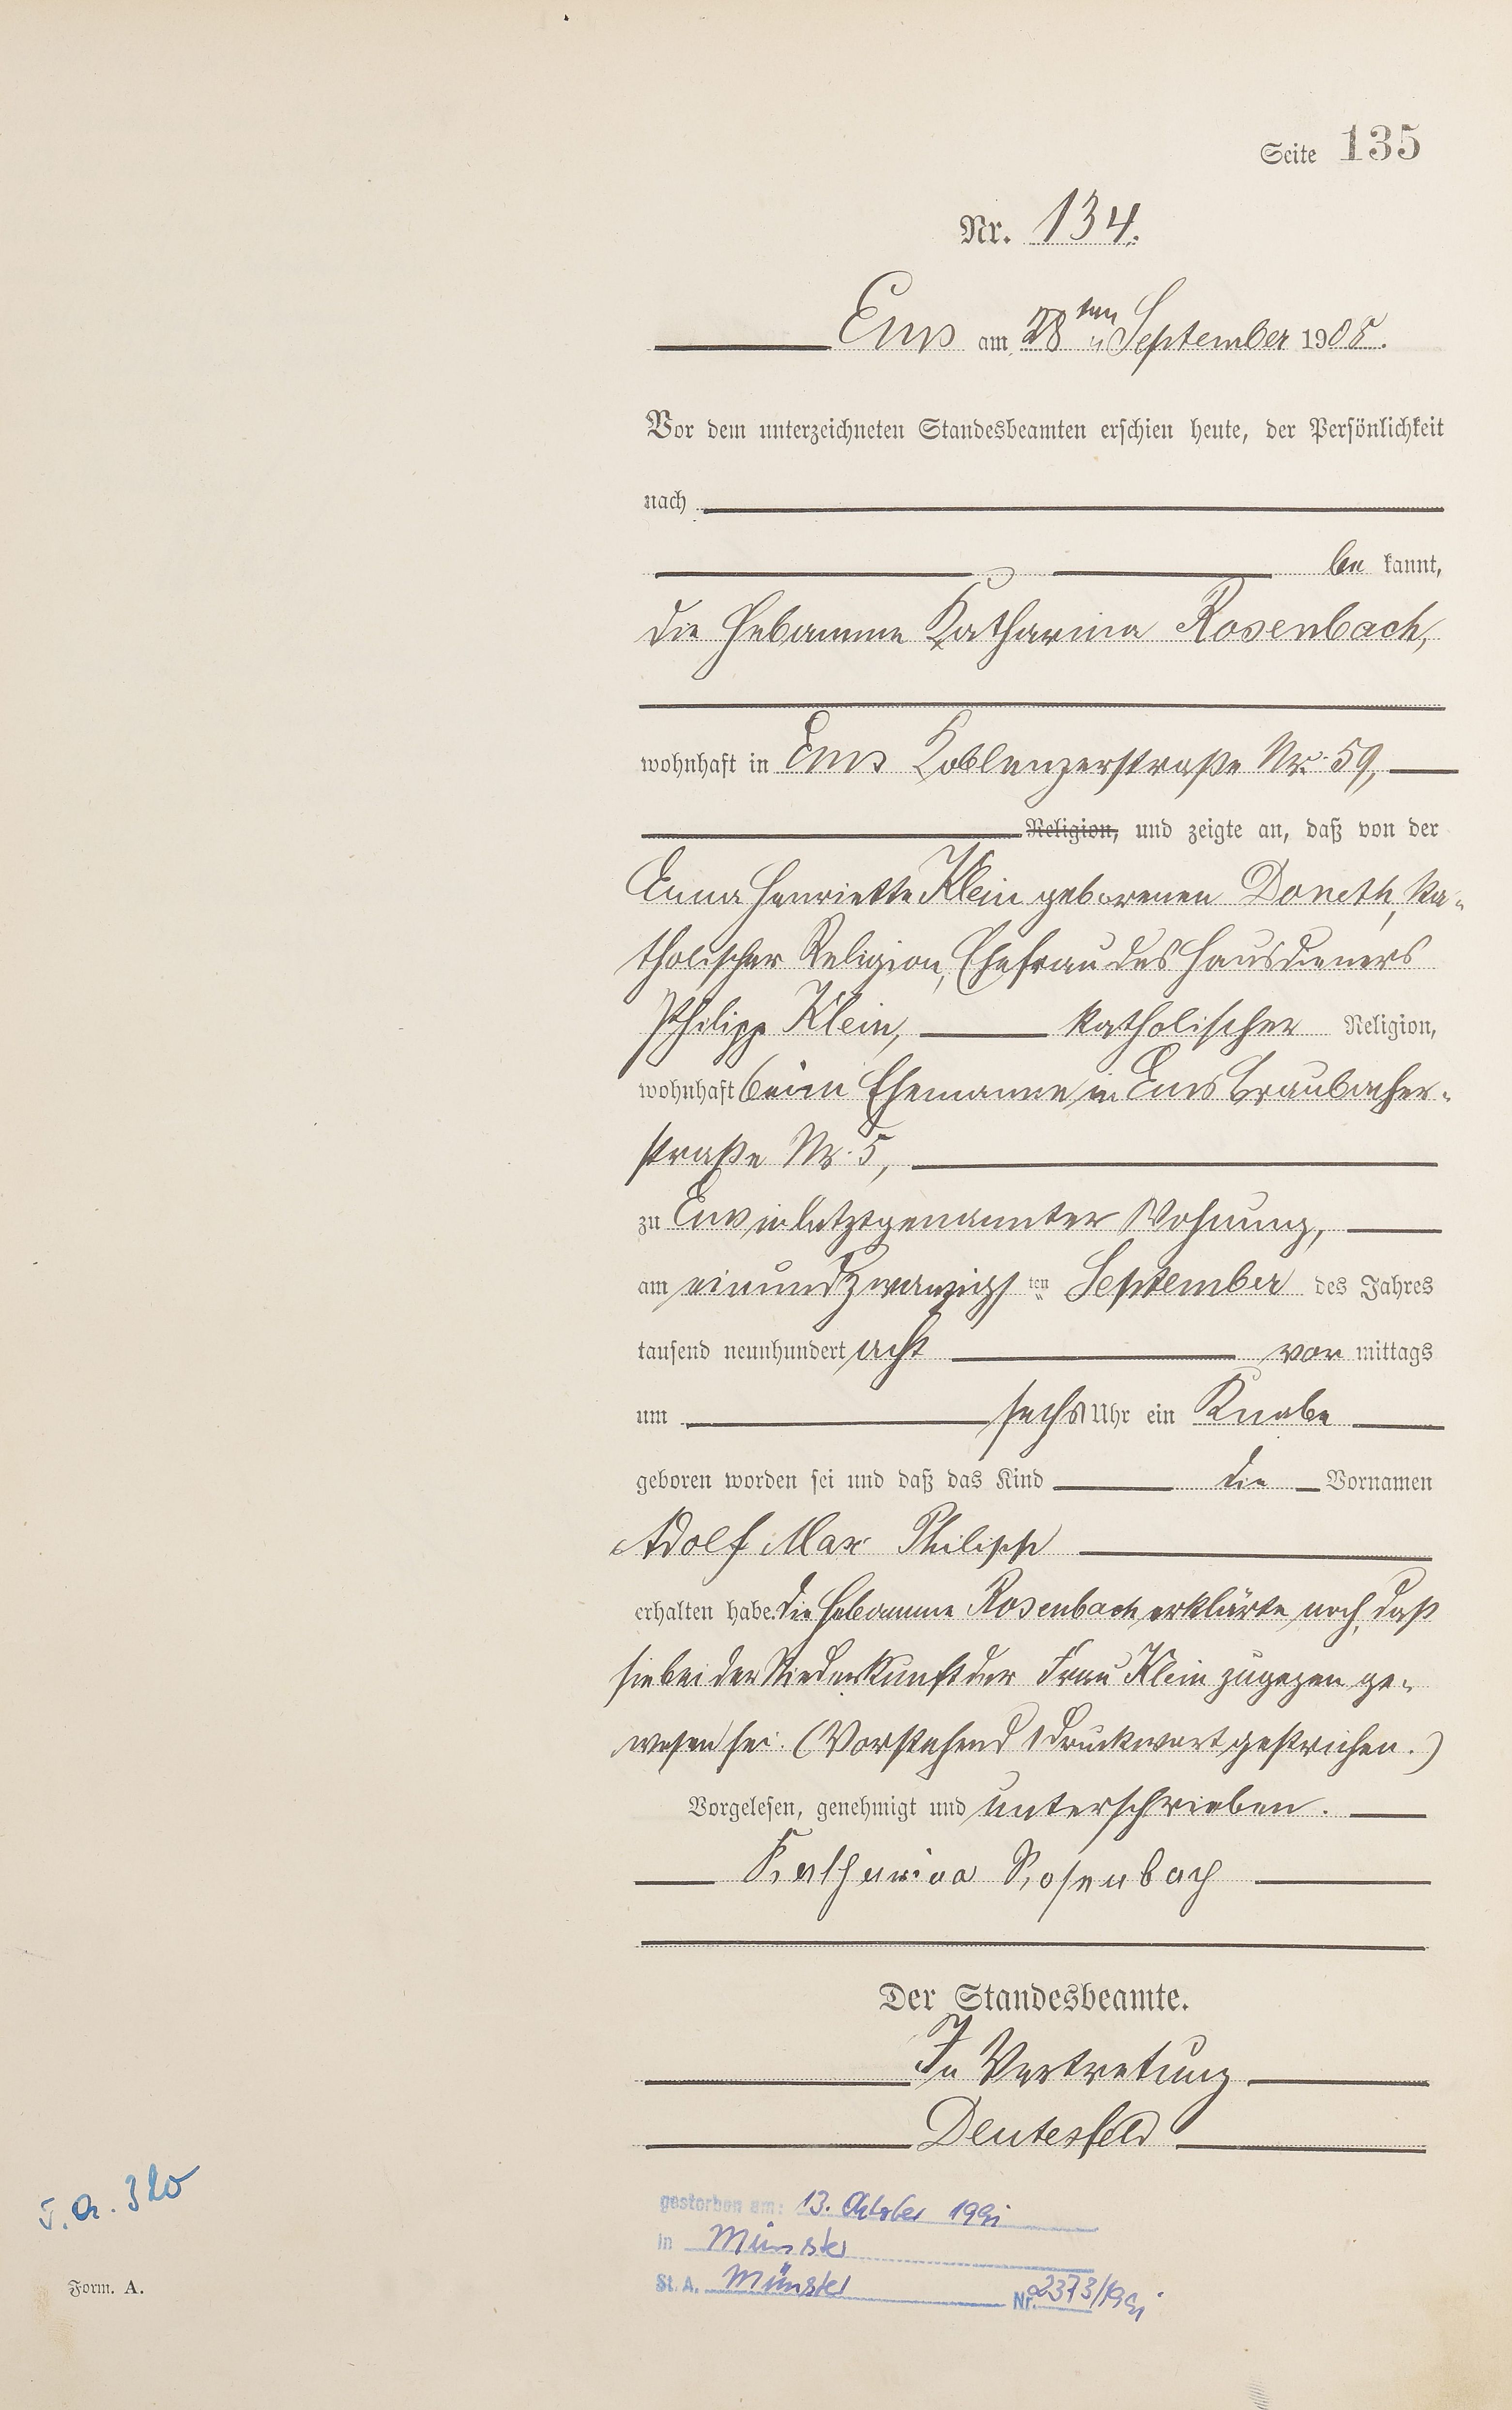 Seite 135
Nr. 134.
Ems am 28ten September 1908.
Vor dem unterzeichneten Standesbeamten erschien heute, der Persönlichkeit
nach
be kannt,
die Hebamme Katharina Rosenbach,
wohnhaft in Ems Koblenzerstraße Nr. 59,
Religion, und zeigte an, daß von der
Emma Henriette Klein geborenen Doneth, ka-
tholischer Religion, Ehefrau des Hausdieners
Philipp Klein, katholischer Religion,
wohnhaft beim Ehemanne in Ems Braubacher-
straße Nr. 5,
zu Ems in letztgenannter Wohnung,
am einundzwanzigsten September des Jahres
tausend neunhundert acht vor mittags
um sechs Uhr ein Knabe
geboren worden sei und daß das Kind die Vornamen
Adolf Max Philipp
erhalten habe. Die Hebamme Rosenbach erklärte noch, daß
sie bei der Niederkunft der Frau Klein zugegen ge-
wesen sei. (Vorstehend 1 Druckwort gestrichen.)
Vorgelesen, genehmigt und unterschrieben.
Katharina Rosenbach
Der Standesbeamte.
In Vertretung
Deutesfeld
gestorben am: 13. Oktober
in Münster
St. A. Münster Nr. 2373/
J. A. 320
Form. A.